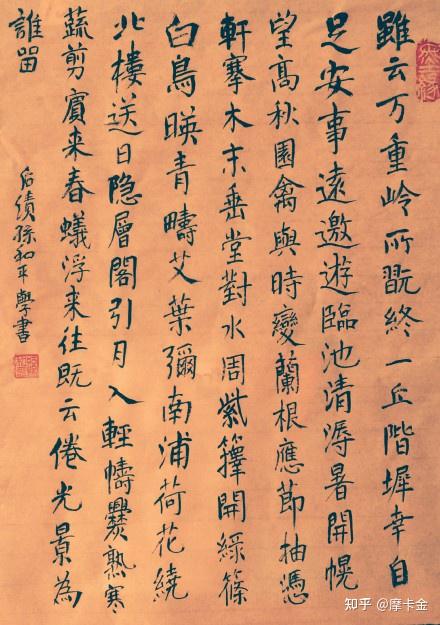 雖云万重岭所翫終一丘階墀幸自
足安事遠遨遊臨池清溽暑開幌
望高秋園禽與時變蘭根應節抽憑
軒搴木末垂堂對水周紫籜開綠篠
白鳥暎青疇艾葉彌南浦荷花繞
北樓送日隐層閣引月入輕幬爨熟寒
蔬剪賓来春蟻浮来往既云倦光景為
誰留
后績孫和平學書
知乎 @摩卡金